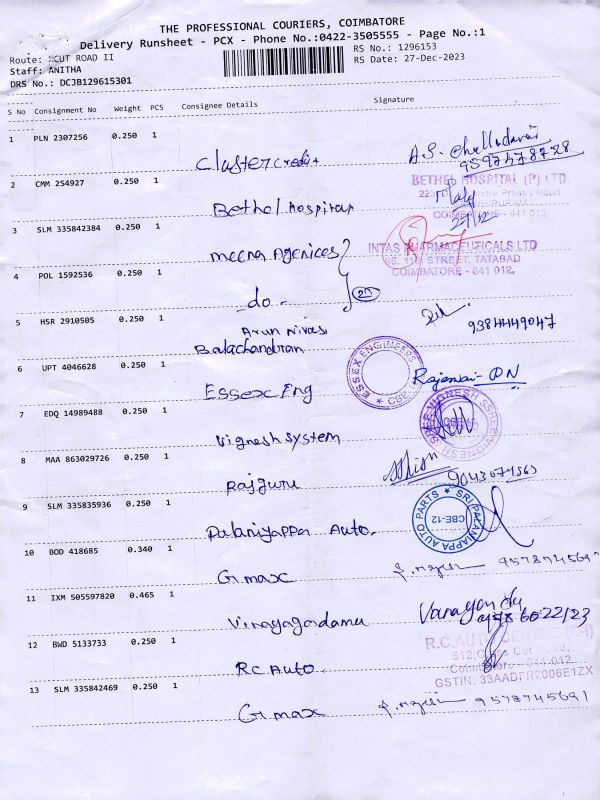 THE PROFESSIONAL COURIERS, COIMBATORE
Delivery Runsheet - PCX - Phone No.:0422-3505555 - Page No.:1
Route: XCUT ROAD II
RS No.: 1296153
Staff: ANITHA
RS Date: 27-Dec-2023
DRS No.: DCJB129615301
S No Consignment No Weight PCS Consignee Details Signature
1 PLN 2307256 0.250 1
Cluster Credit
9597478728
2 CMM 254927 0.250 1
BETHEL HOSPITAL (P) LTD.
Bethel hospital
COIMBATORE - 641 012.
3 SLM 335842384 0.250 1
meena Agenices
INTAS PHARMACEUTICALS LTD
STREET, TATABAD
COIMBATORE - 641 012.
4 POL 1592536 0.250 1
-do-
5 HSR 2910505 0.250 1
Arun nivas
Balachandran
9384449047
6 UPT 4046628 0.250 1
ESSEX ENGINEERS
Essex Eng
7 EDQ 14989488 0.250 1
Vignesh System
8 MAA 863029726 0.250 1
Rajguru
9043074563
9 SLM 335835936 0.250 1
SRI PALANIAPPA AUTO PARTS
CBE-12
Palaniyappa Auto.
10 BOD 418685 0.340 1
G.max
11 IXM 505597820 0.465 1
Vinayagadamu
12 BWD 5133733 0.250 1
R.C.AUTO
512, Cross Cut Road,
Coimbatore - 641 012
GSTIN: 33AADFR2006E1ZX
R.C Auto.
13 SLM 335842469 0.250 1
G.max
9578745691